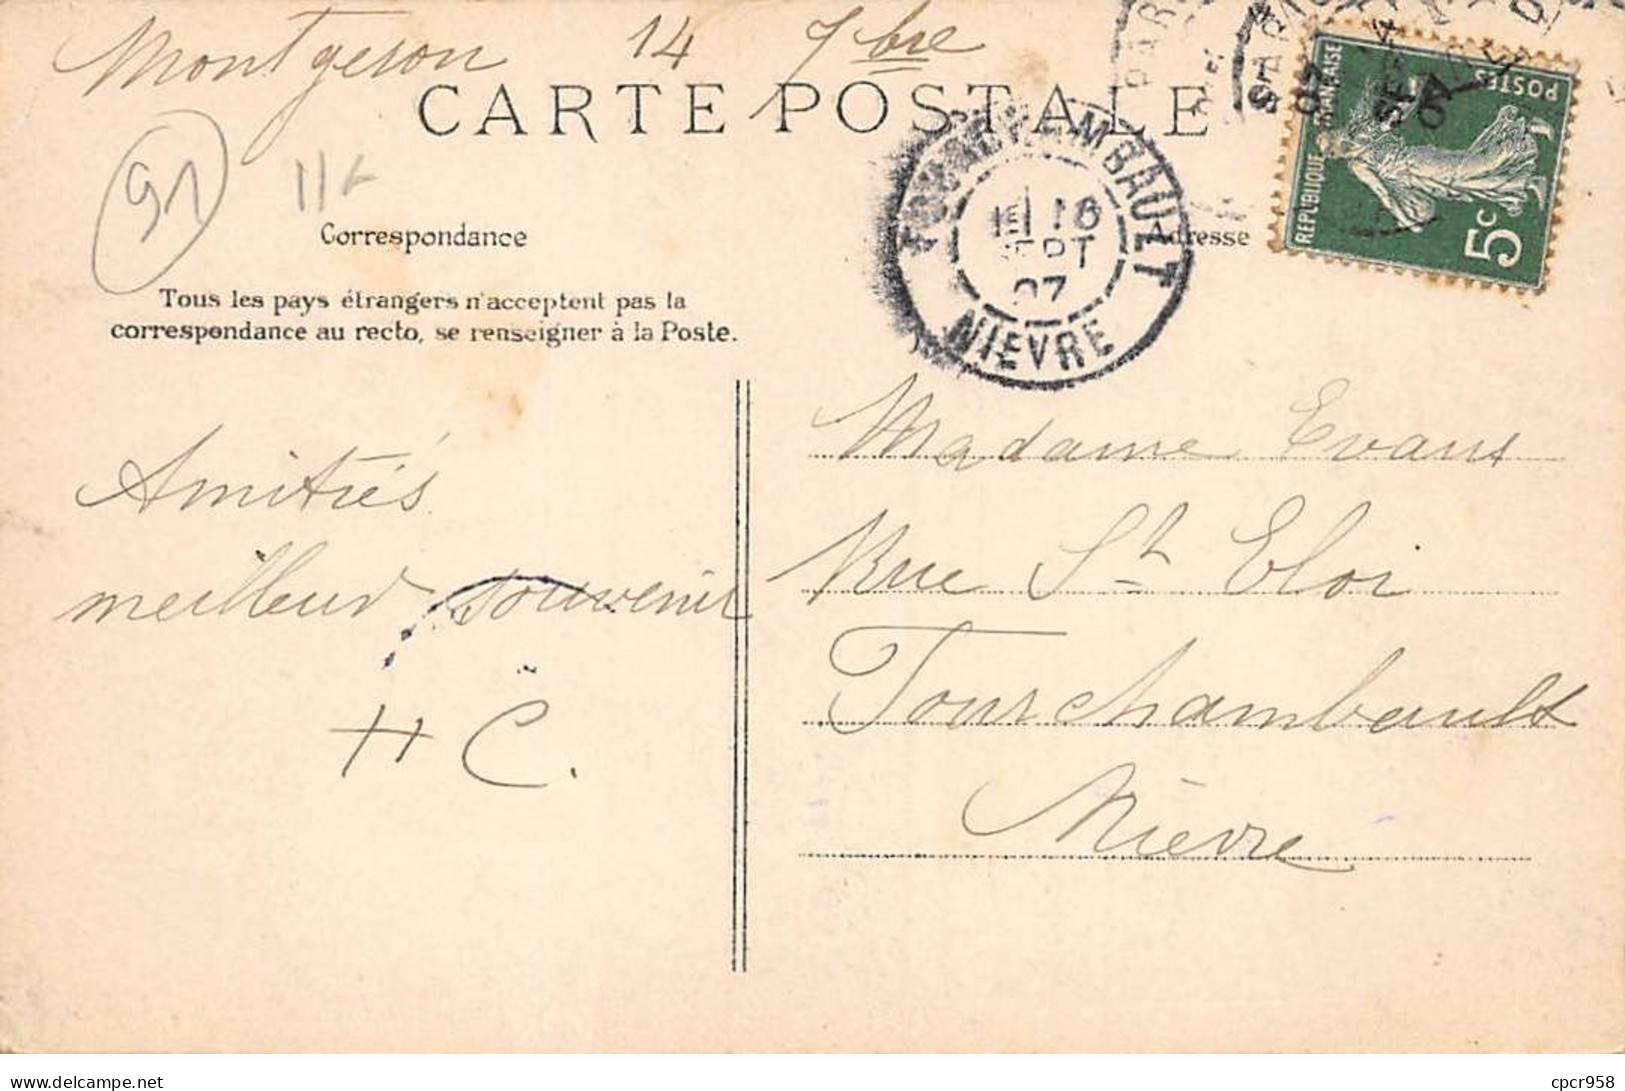 Montgeron 14 7bre
CARTE POSTALE
91
Correspondance
Adresse
Tous les pays étrangers n'acceptent pas la
correspondance au recto, se renseigner à la Poste.
FOURCHAMBAULT
16
SEPT
07
NIEVRE
REPUBLIQUE FRANÇAISE
POSTES
5c
Amitiés
meilleur souvenir
H C.
Madame Evans
Rue St Eloi
Fourchambault
Nièvre
cpcr958